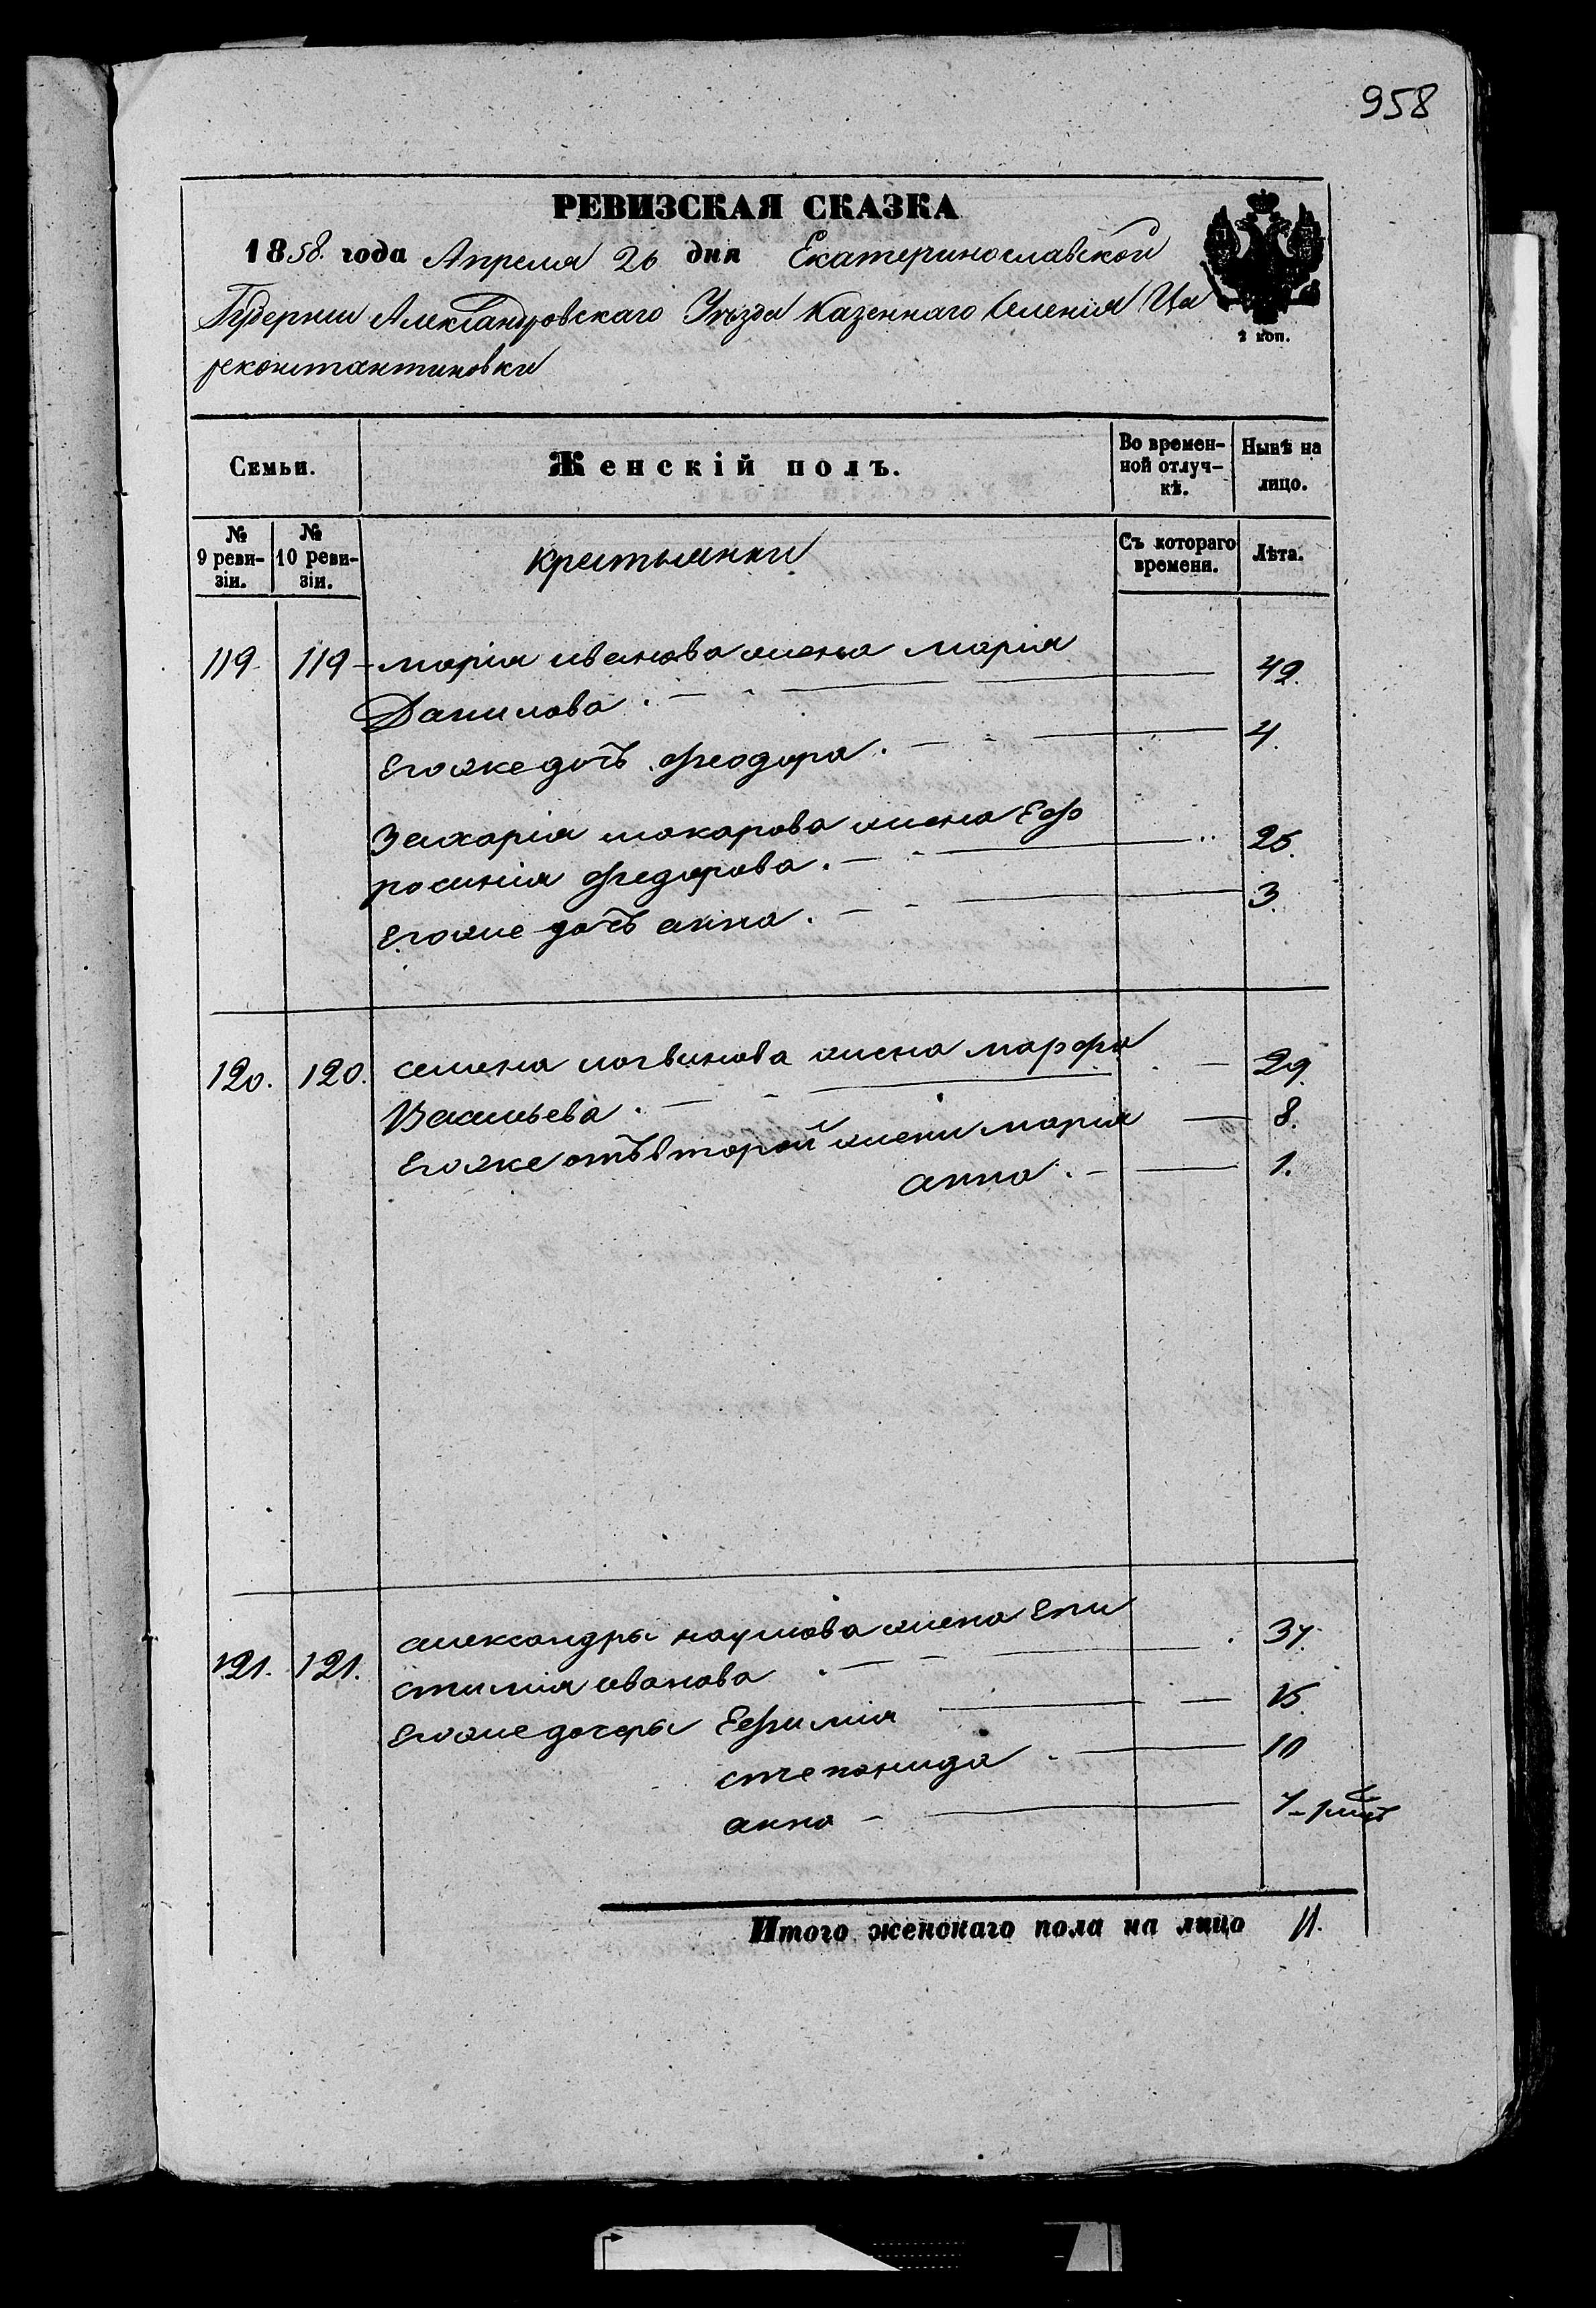 958
РЕВИЗСКАЯ СКАЗКА
1858. года Апреля 26 дня Екатеринославской
Губернии Александровскаго Уезда Казеннаго Селенія Ца
реконстантиновки
2 коп.
Семьи.
Женскій полъ.
Во времен-
ной отлуч-
кѣ.
Нынѣ на
лицо.
№
9 реви-
зіи.
№
10 реви-
зіи.
крестьянки
Съ котораго
времени.
Лѣта.
119 119 марія иванова жена марія
Данилова. 42.
Егоже дочь феодора. 4.
Захарія макарова жена Еф
росинія федорова. 25.
Егоже дочь анна. 3.
120. 120. семена логвинова жена марфа 29.
Васильева.
Егоже отъ второй жены марія 8.
анна. 1.
121. 121. александры наумова жена Епи
стимия иванова 37.
Егоже дочеры Ефимия 15.
степанида 10
анна
Итого женскаго пола на лицо 11.